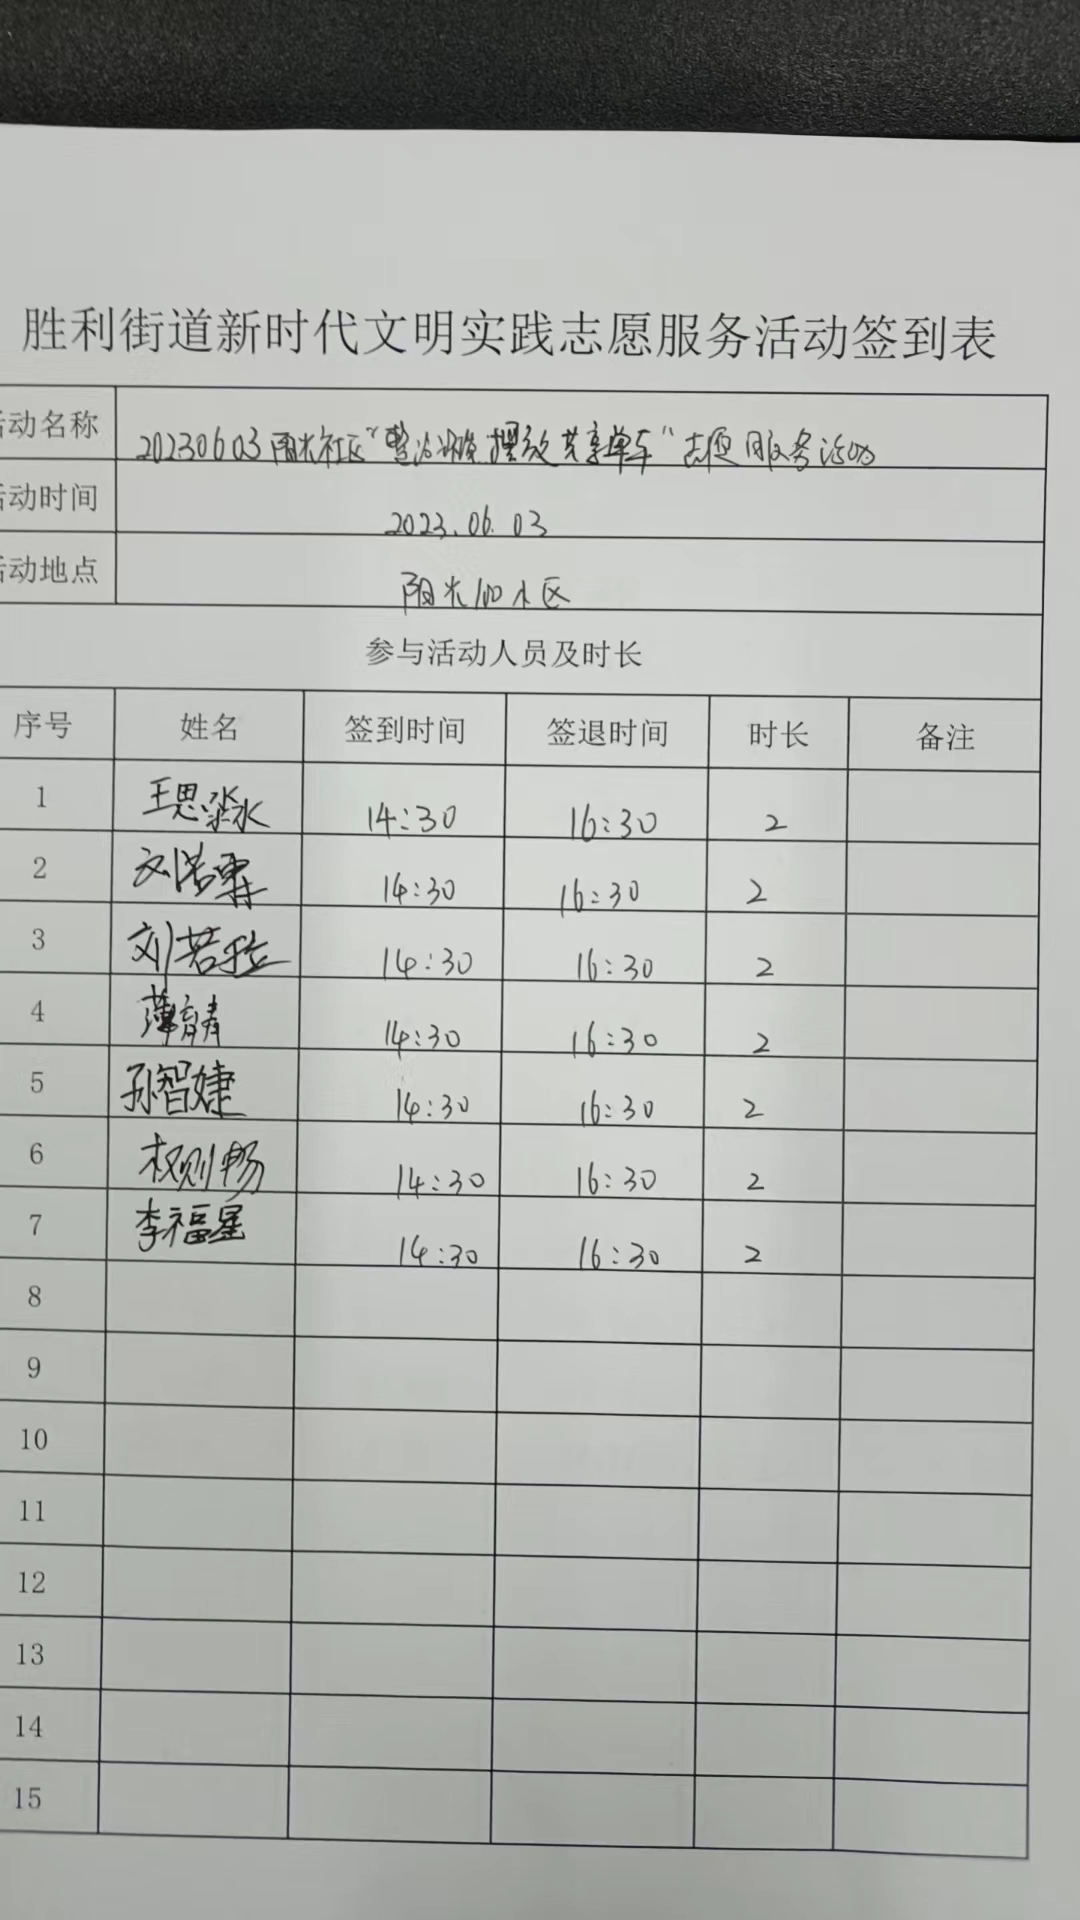 胜利街道新时代文明实践志愿服务活动签到表
活动名称 20230603阳光社区“整治环境 摆放共享单车”志愿服务活动
活动时间 2023.06.03
活动地点 阳光100小区
参与活动人员及时长
序号 姓名 签到时间 签退时间 时长 备注
1 王思淼 14:30 16:30 2
2 14:30 16:30 2
3 刘若 14:30 16:30 2
4 薄靖 14:30 16:30 2
5 孙智婕 14:30 16:30 2
6 权则畅 14:30 16:30 2
7 李福星 14:30 16:30 2
8
9
10
11
12
13
14
15